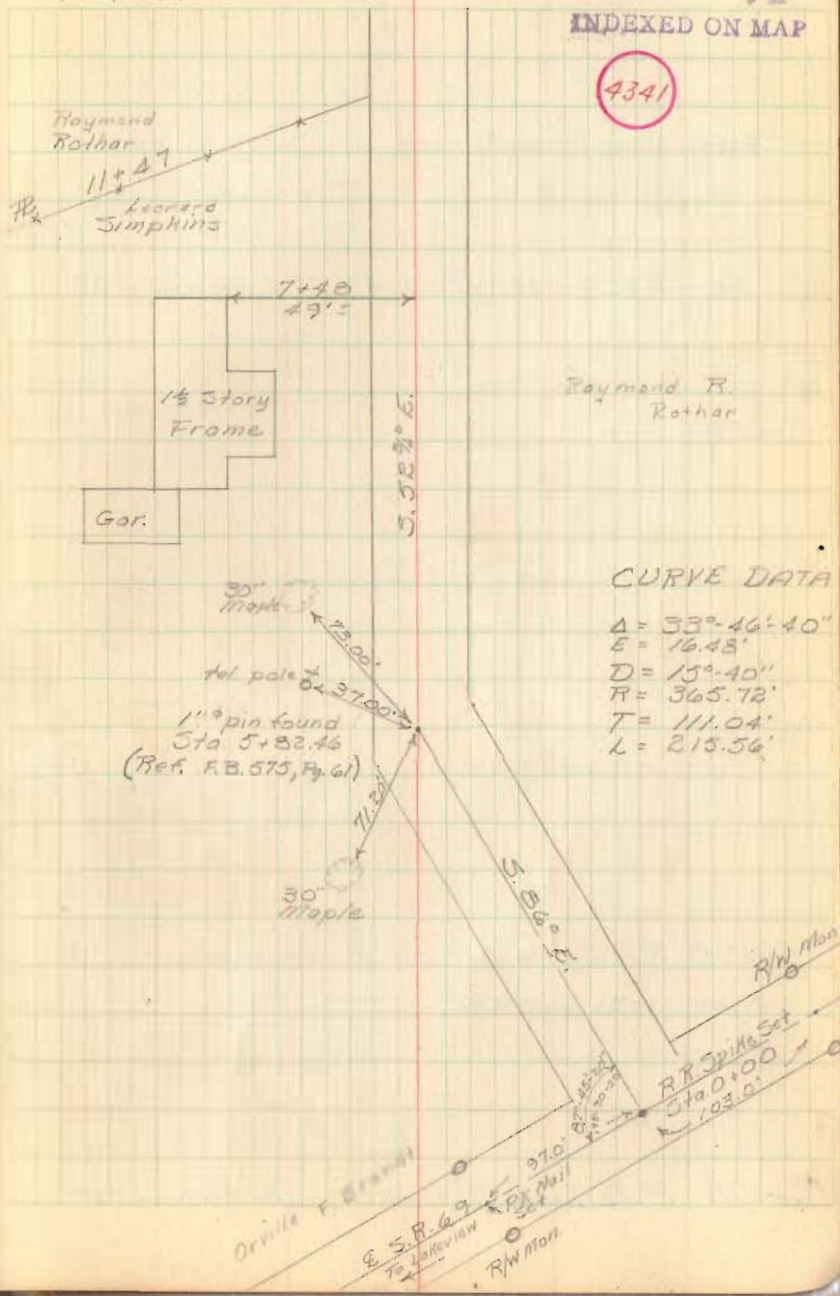 INDEXED ON MAP
4341
Raymond
Rothar
11+47
Leonard
Simpkins
7+48
49'±
1½ Story
Frame
Gar.
S. 52¾° E.
Raymond R.
Rothar
CURVE DATA
Δ = 33°-46'-40"
E = 16.48'
D = 15°-40"
R = 365.72'
T = 111.04'
L = 215.56'
30"
Maple
73.00'
tel. pole
37.00'
1"ø pin found
Sta. 5+82.46
(Ref. F.B. 575, Pg. 61)
71.20'
30"
Maple
S. 86° E.
R/W Mon.
R.R. Spike Set
Sta. 0+00
103.0'
97.0'
P.K. Nail
Set
Orville F.
℄ S.R. 69
To Lakeview
R/W Mon.